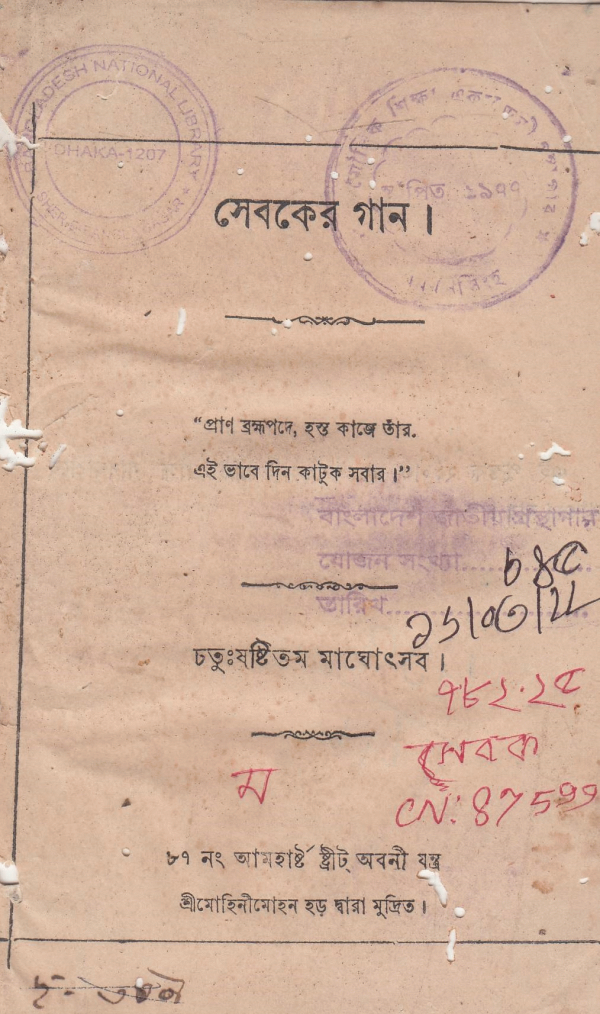 BANGLADESH NATIONAL LIBRARY
DHAKA-1207
সেবকের গান ।
“প্রাণ ব্রহ্মপদে, হস্ত কাজে তাঁর.
এই ভাবে দিন কাটুক সবার ।”
বাংলাদেশ জাতীয় গ্রন্থাগার
যোজন সংখ্যা..........
৮৪৫
তারিখ..........
চতুঃষষ্টিতম মাঘোৎসব ।
৭৮২.২৫
সেবক
ম
৮৭ নং আমহার্ষ্ট ষ্ট্রীট্ অবনী যন্ত্র
শ্রীমোহিনীমোহন হড় দ্বারা মুদ্রিত ।